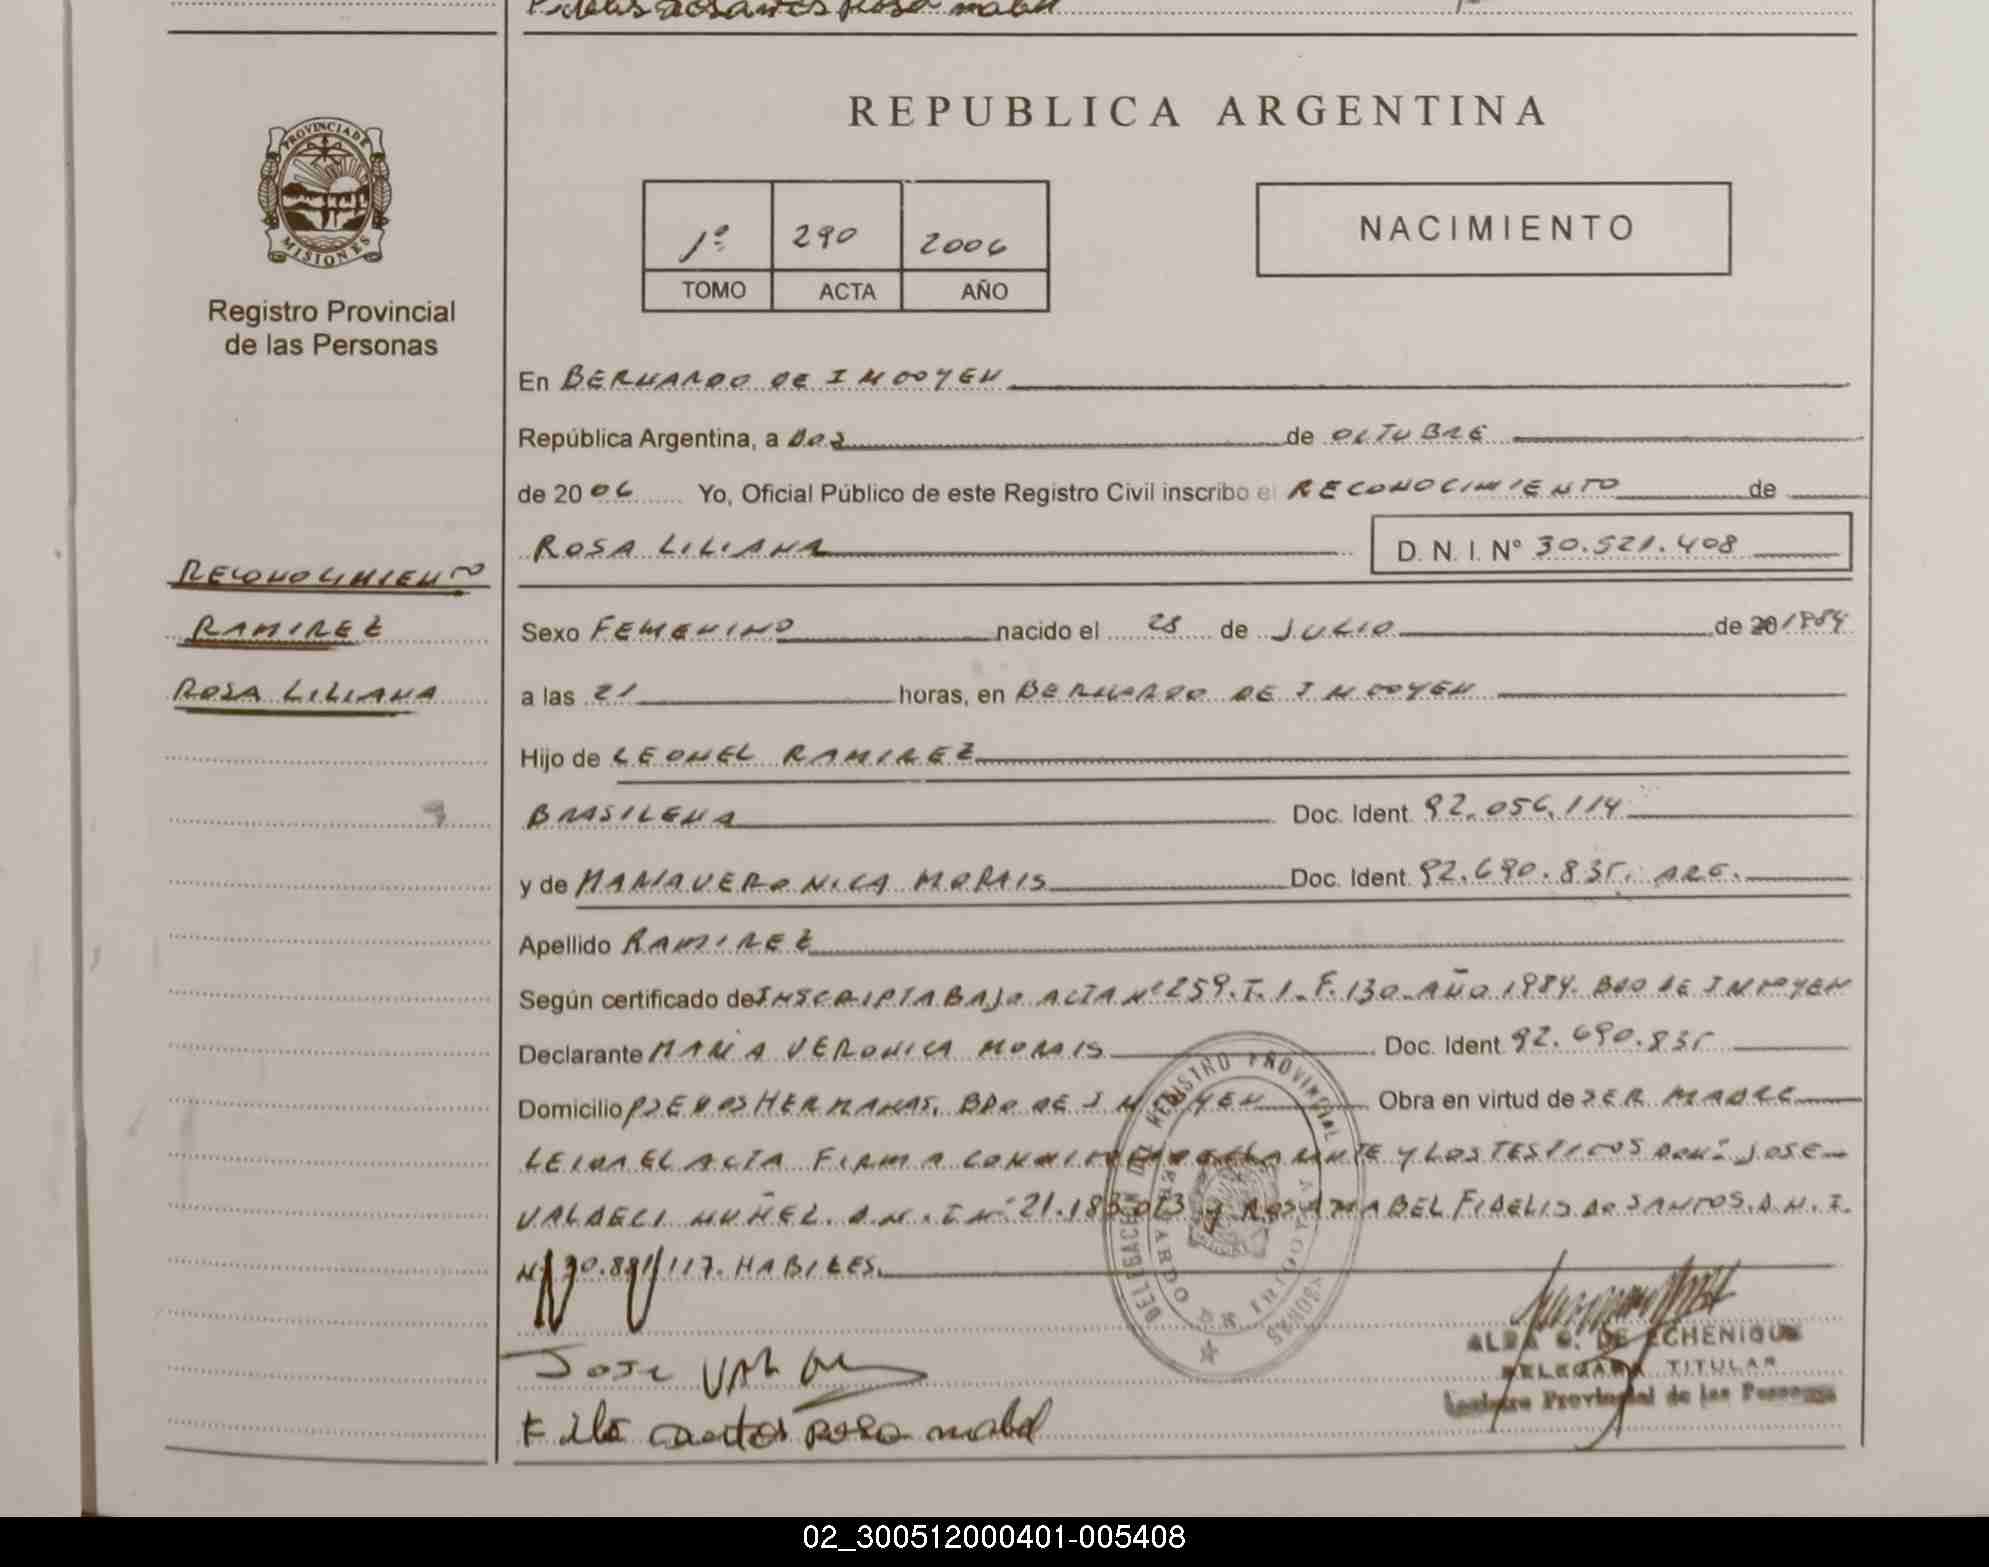 PROVINCIA DE MISIONES
Registro Provincial
de las Personas
RECONOCIMIENTO
RAMIREZ
ROSA LILIANA
REPUBLICA ARGENTINA
1º 290 2006
TOMO ACTA AÑO
NACIMIENTO
En BERNARDO DE IRIGOYEN
República Argentina, a DOS de OCTUBRE
de 2006 Yo, Oficial Público de este Registro Civil inscribo el RECONOCIMIENTO de
ROSA LILIANA D. N. I. Nº 30.521.408
Sexo FEMENINO nacido el 28 de JULIO de 20 1984
a las 21 horas, en BERNARDO DE IRIGOYEN
Hijo de LEONEL RAMIREZ
BRASILENA Doc. Ident. 92.056.114
y de MARIA VERONICA MORAIS Doc. Ident. 92.690.835. ARG.
Apellido RAMIREZ
Según certificado de INSCRIPTA BAJO ACTA Nº 259. T. 1. F. 130. AÑO 1984. BDO DE IRIGOYEN
Declarante MARIA VERONICA MORAIS Doc. Ident. 92.690.835
Domicilio PJE DOS HERMANAS. BDO DE IRIGOYEN Obra en virtud de SER MADRE
LEIDA EL ACTA FIRMA CONMIGO DECLARANTE Y LOS TESTIGOS DON: JOSE
VALDECI NUÑEZ. D.N.I Nº 21.183.013 y ROSA MABEL FIDELIS DO SANTOS. D.N.I.
Nº 30.881.117. HABILES.
DELEGACION DEL REGISTRO PROVINCIAL
BERNARDO DE IRIGOYEN
ALBA G. DE ECHENIQUE
DELEGADA TITULAR
Registro Provincial de las Personas
Jose
santos rosa mabel
02_300512000401-005408